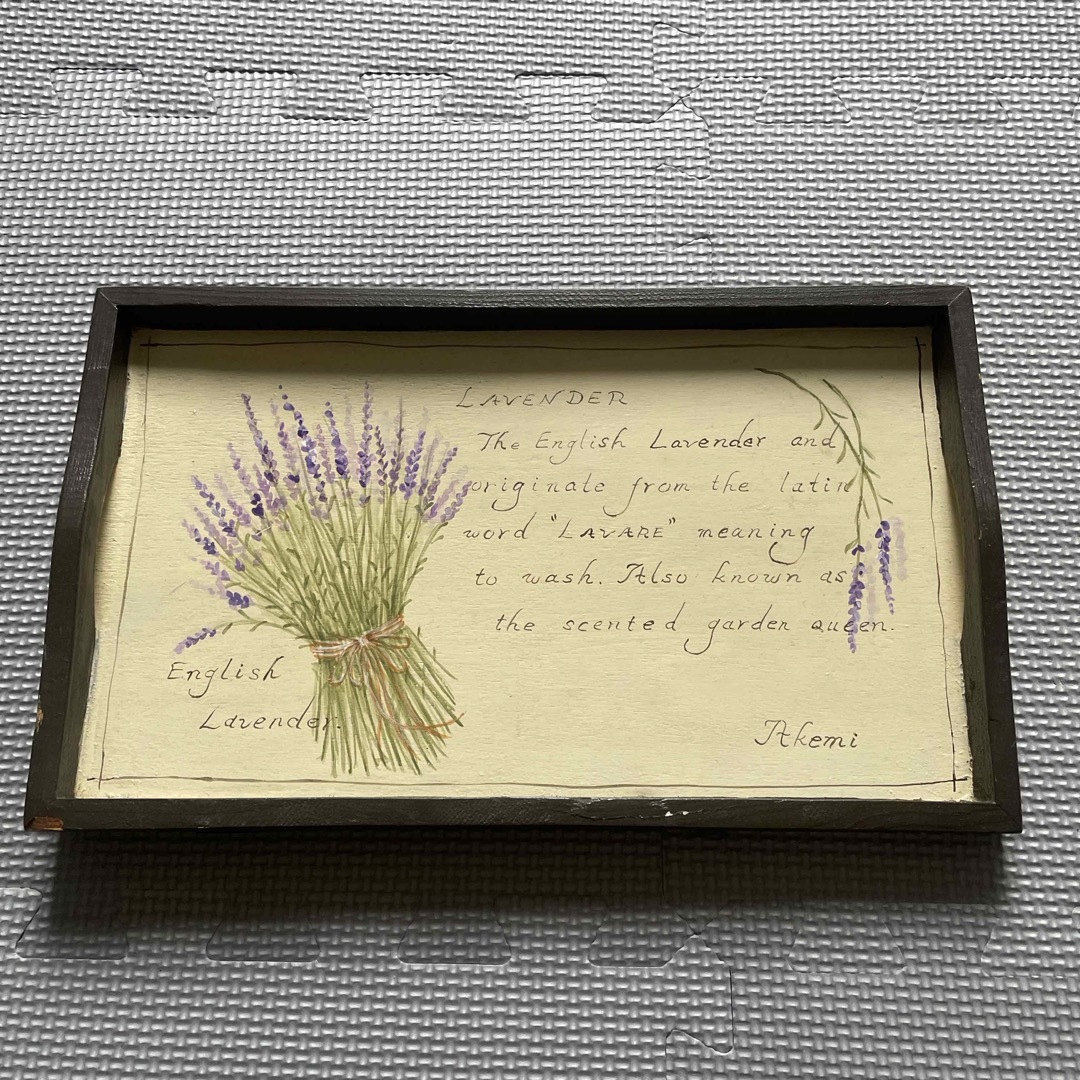 LAVENDER
The English Lavender and
originate from the latin
word "LAVARE" meaning
to wash. Also known as
the scented garden queen.
English
Lavender.
Akemi